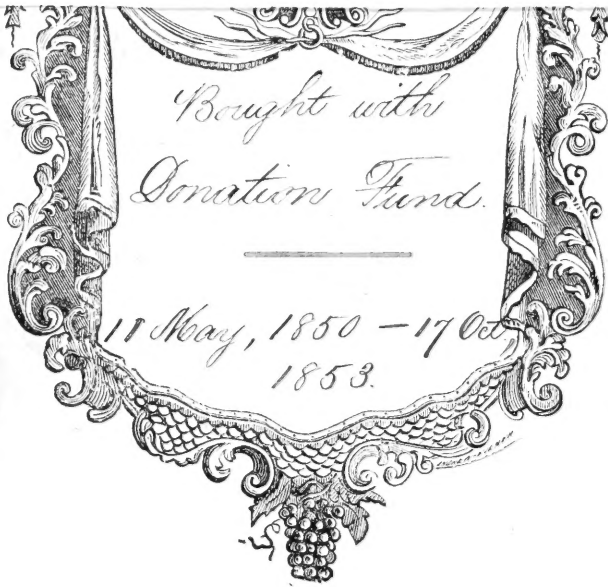 Bought with
Donation Fund.
11 May, 1850 – 17 Oct,
1853.